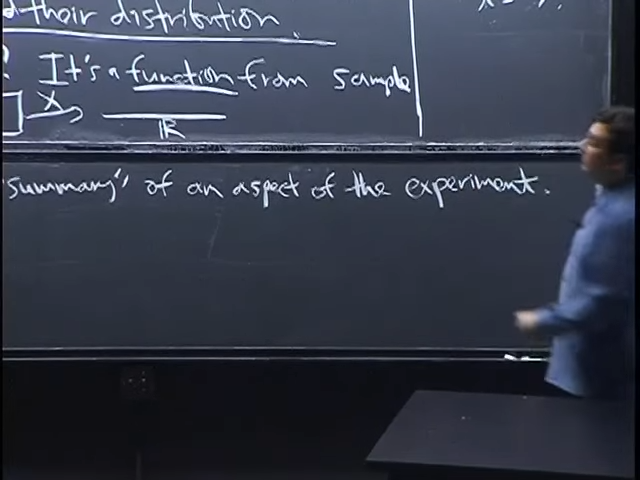 their distribution.
It's a function from sample
X
ℝ
"summary" of an aspect of the experiment.